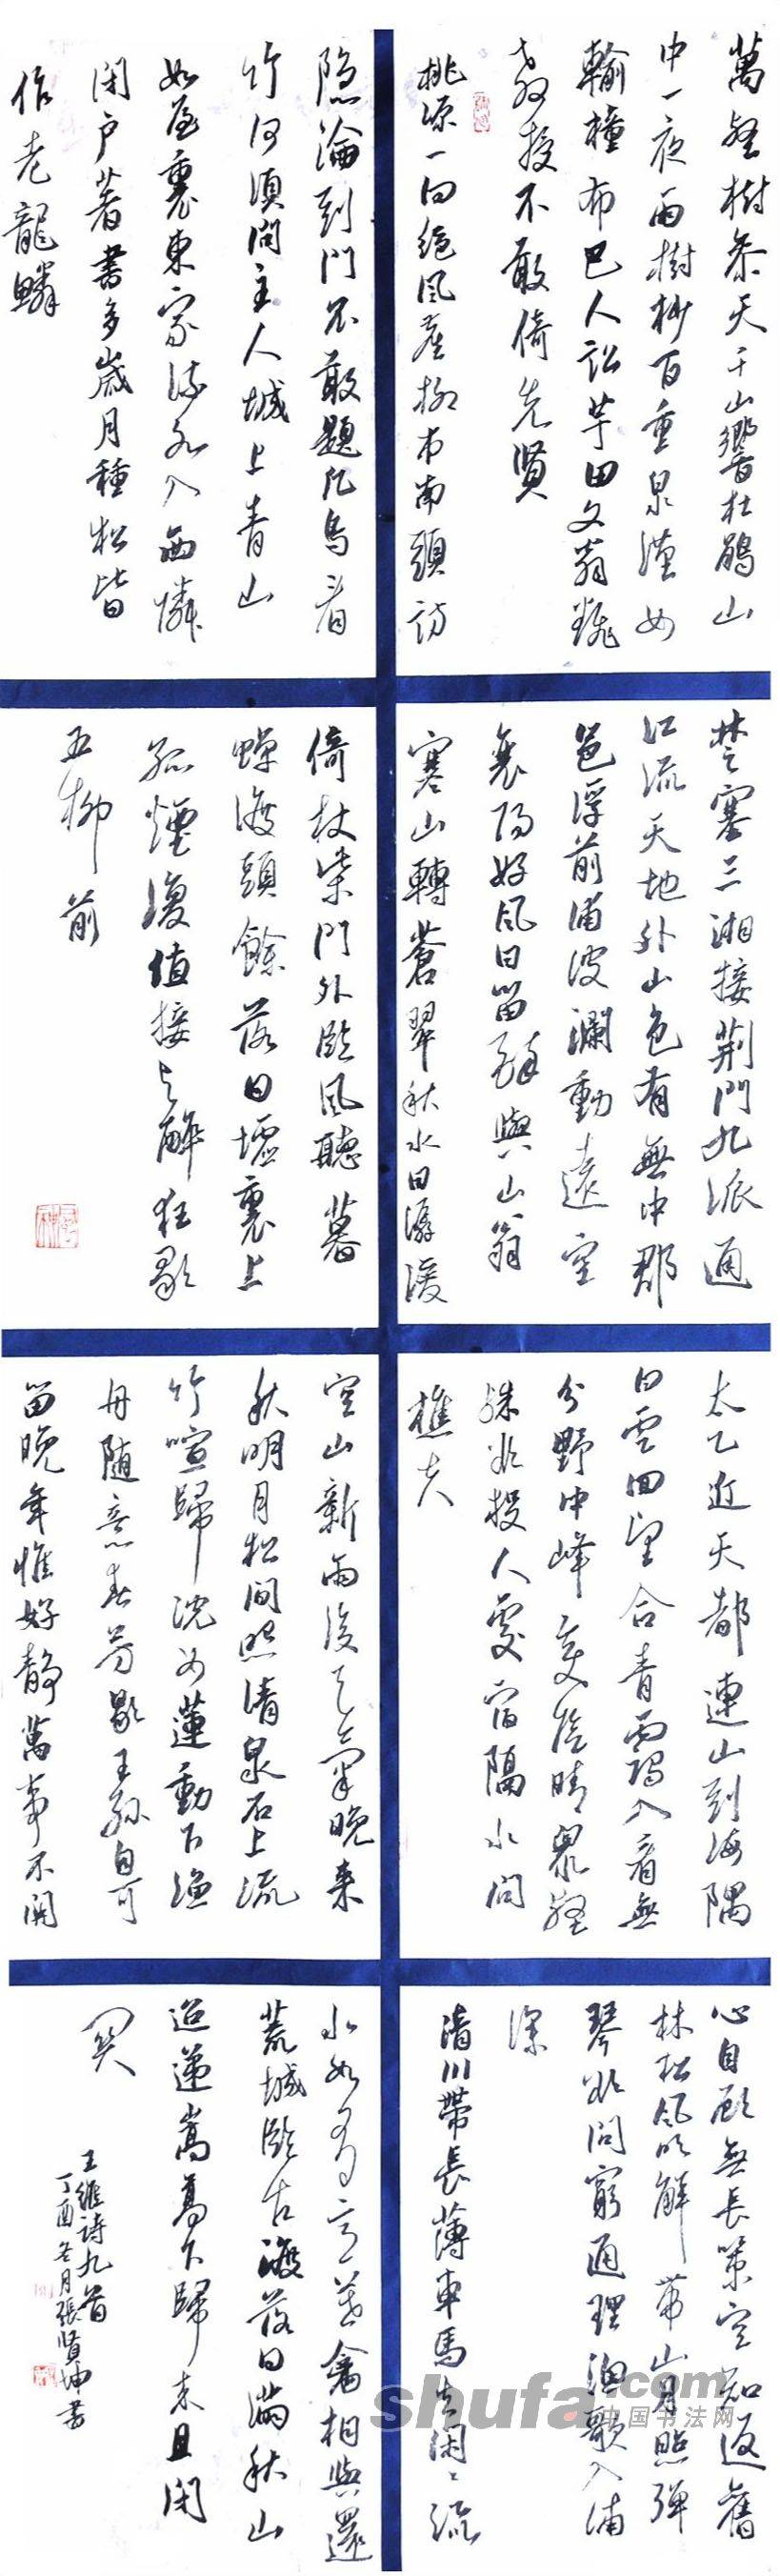 萬壑樹參天千山響杜鵑山
中一夜雨樹杪百重泉漢女
輸橦布巴人訟芋田文翁翻
教授不敢倚先賢
桃源一向絕風塵柳市南頭訪
隱淪到門不敢題凡鳥看
竹何須問主人城上青山
如屋裏東家流水入西鄰
閉戶著書多歲月種松皆
作老龍鱗
楚塞三湘接荊門九派通
江流天地外山色有無中郡
邑浮前浦波瀾動遠空
襄陽好風日留醉與山翁
寒山轉蒼翠秋水日潺湲
倚杖柴門外臨風聽暮
蟬渡頭餘落日墟裏上
孤煙復值接輿醉狂歌
五柳前
太乙近天都連山到海隅
白雲回望合青靄入看無
分野中峰變陰晴眾壑
殊欲投人處宿隔水問
樵夫
空山新雨後天氣晚來
秋明月松間照清泉石上流
竹喧歸浣女蓮動下漁
舟隨意春芳歇王孫自可
留晚年惟好靜萬事不關
心自顧無長策空知返舊
林松風吹解帶山月照彈
琴欲問窮通理漁歌入浦
深
清川帶長薄車馬去閑閑流
水如有意暮禽相與還
荒城臨古渡落日滿秋山
迢遞嵩高下歸來且閉
關
王維詩九首
丁酉冬月張賢坤書
shufa.com
中国书法网